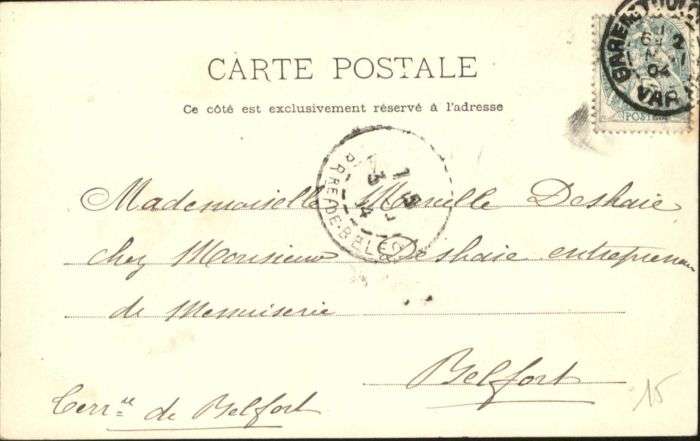 CARTE POSTALE
Ce côté est exclusivement réservé à l'adresse
GARE
VAR
04
POSTES
Mademoiselle Marcelle Deshaie
chez Monsieur Deshaie entrepreneur
de Menuiserie
Belfort
Terr.re de Belfort
15